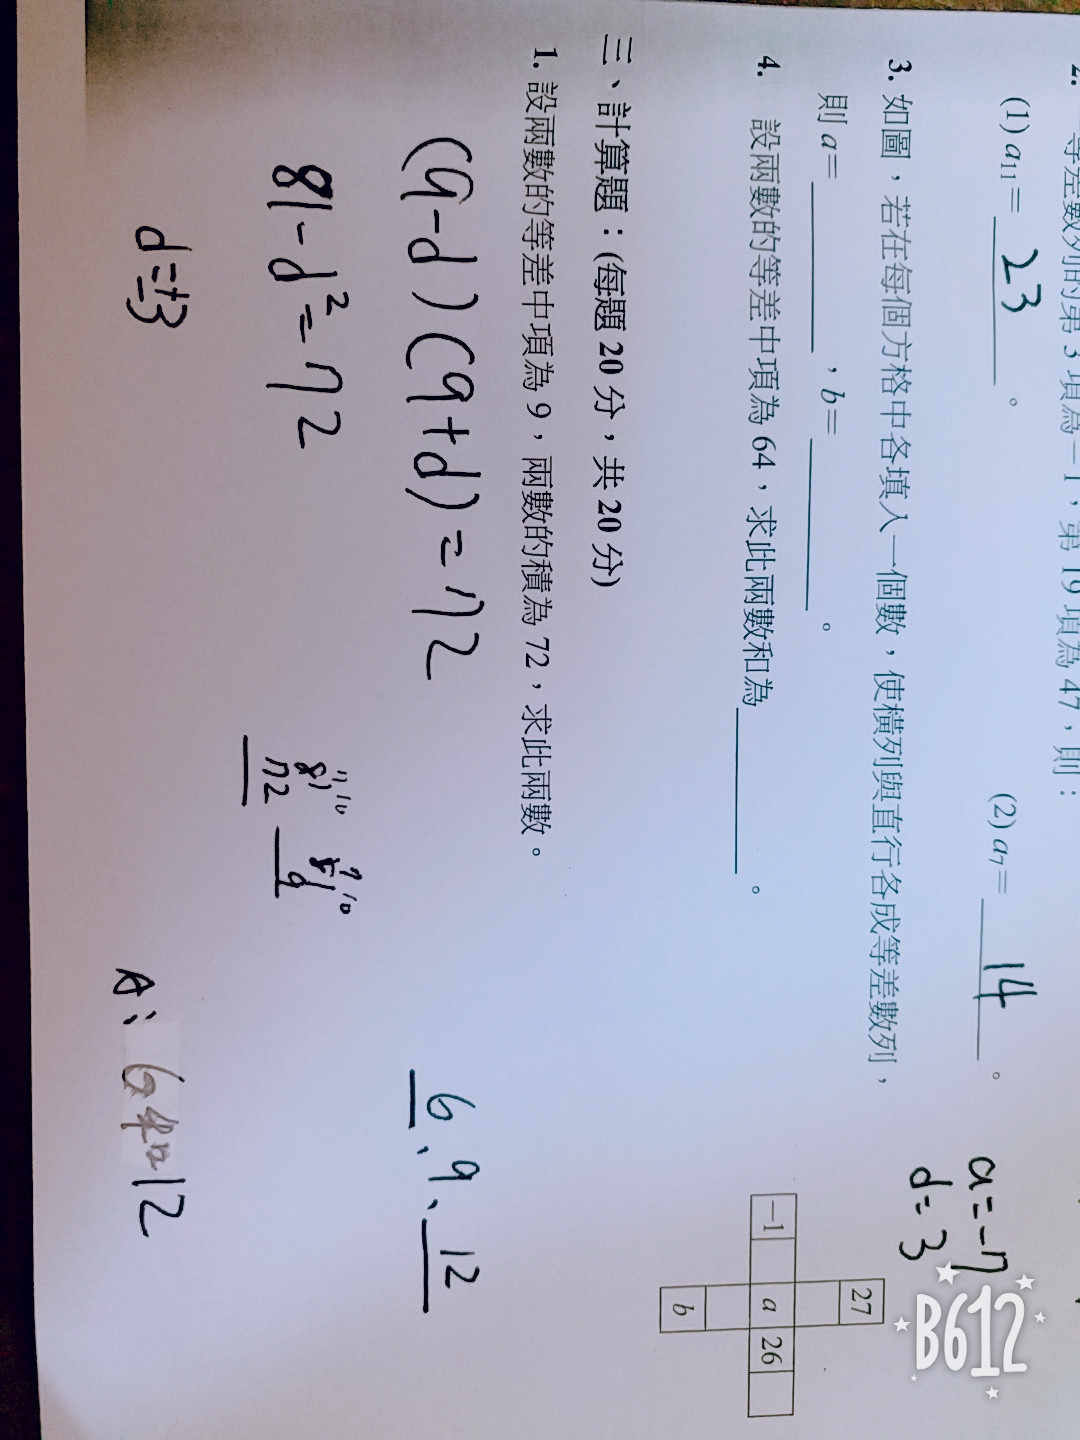 2. 等差數列的第 3 項為－1，第 19 項為 47，則：
(1) a₁₁＝ 23 。 (2) a₇＝ 14 。
a=-7
d=3
3. 如圖，若在每個方格中各填入一個數，使橫列與直行各成等差數列，
則 a＝ ，b＝ 。
27
-1 a 26
b
4. 設兩數的等差中項為 64，求此兩數和為 。
三、計算題：(每題 20 分，共 20 分)
1. 設兩數的等差中項為 9，兩數的積為 72，求此兩數。
(9-d)(9+d)=72
6、9、12
81-d²=72
7 10
81
72
7 10
81
9
d=±3
A: 6和12
B612